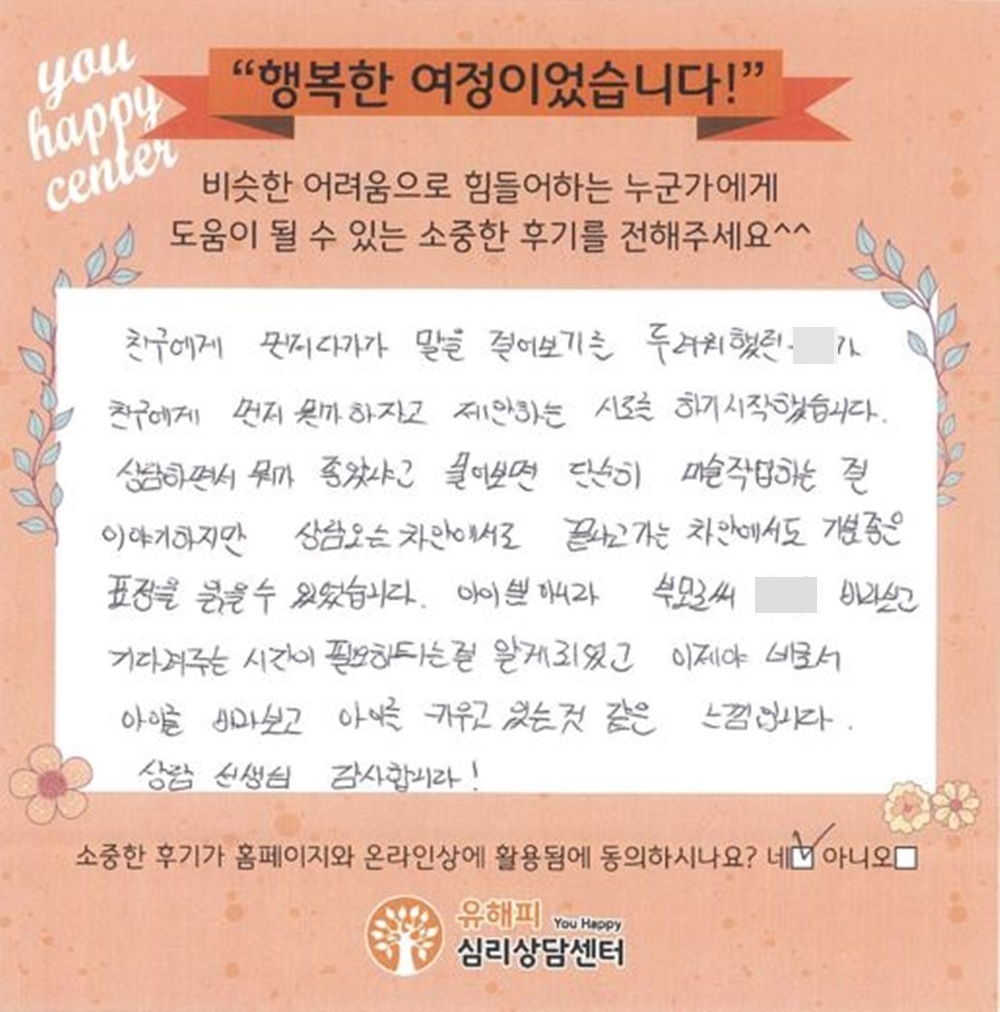 you
happy
center
“행복한 여정이었습니다!”
비슷한 어려움으로 힘들어하는 누군가에게
도움이 될 수 있는 소중한 후기를 전해주세요^^
친구에게 먼저다가가 말을 걸어보기는 두려워했던 가
친구에게 먼저 뭔가 하자고 제안하는 시도를 하기시작했습니다.
상담하면서 뭐가 좋았냐고 물어보면 단순히 미술작업하는 걸
이야기하지만 상담오는 차안에서도 끝나고 가는 차안에서도 기분좋은
표정을 읽을 수 있었습니다. 아이뿐 아니라 부모로써 바라보고
기다려주는 시간이 필요하다는걸 알게되었고 이제야 비로서
아이를 바라보고 아이를 키우고 있는것 같은 느낌입니다.
상담 선생님 감사합니다!
소중한 후기가 홈페이지와 온라인상에 활용됨에 동의하시나요? 네☑ 아니오☐
유해피 You Happy
심리상담센터